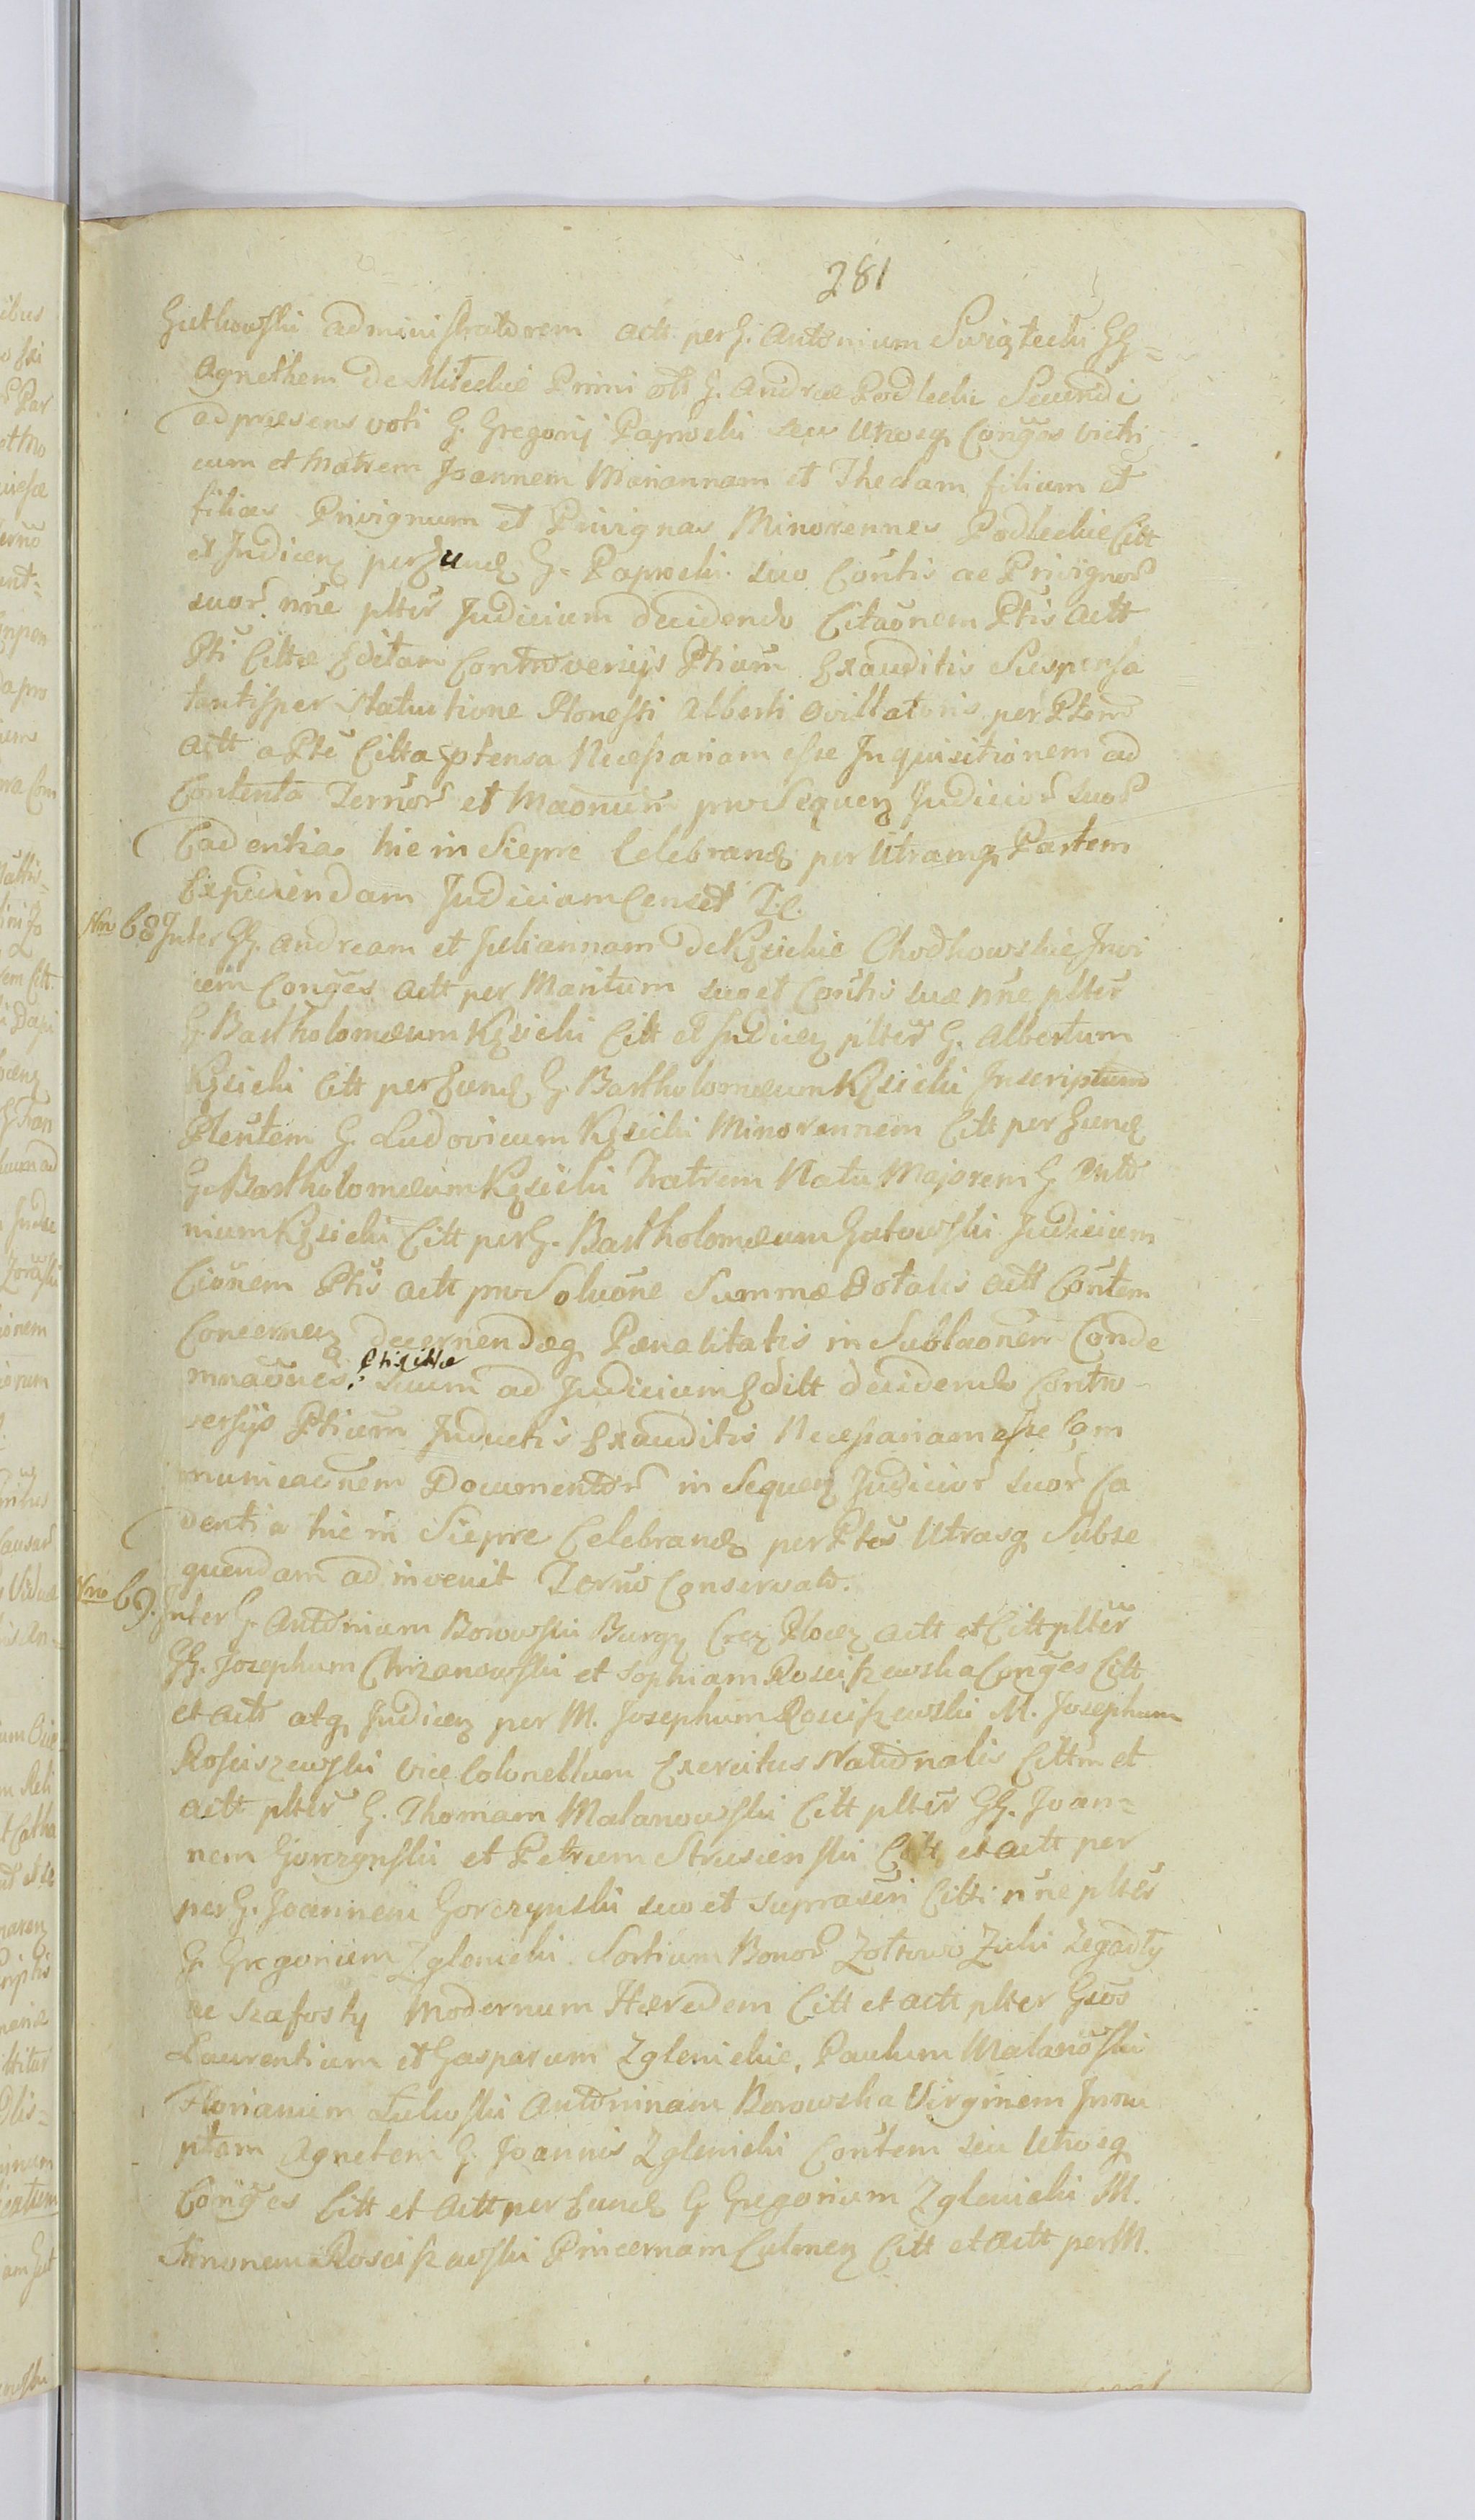 281
Gutkowski administratorem actt per G. Antonium Swięcicki GG=
Agnethem de Miteckie Primi olt G. Andreæ Podlecki Secundi
ad præsens voti G. Gregorij Paprocki seu Utrosq Conges vitri
cum et Matrem Joannem Mariannam et Theclam filium et
filias Privignum et Privignas Minorennes Podleckie Citt
et Judicez per Eund G. Paprocki suo Contis ac Privignor
suor nne plter Judicium decidendo Citaonem Ptis Actt
Pti Cittæ Editam Controversijs Ptium Exauditis Suspensa
tantisper Statuitione Honesti Alberti ovillatoris per Ptem
Actt a Pte Citta ptensa Necessariam esse Inquisitionem ad
Contenta Termor et Maonum pro Sequez Judicior suor
Cadentia hic in Sierpc Celebrand per Utramq Partem
Expediendam Judicium Censet T.C.
Nro 68 Inter GG. Andream et Juliannam de Kęsickie Chodkowskie Invi
cem Conges Actt per Maritum suo et Contis suæ nne plter
G. Bartholomæum Kęsicki Citt et Judicez plter G. Albertum
Kęsicki Citt per Eund G. Bartholomæum Kęsicki Inscriptum
Plentem G. Ludovicum Kęsicki Minorennem Citt per Eund
G. Bartholomæum Kęsicki Fratrem Natu Majorem G. Anto
nium Kęsicki Citt per G. Bartholomæum Gutowski Judicium
Cionem Ptis actt pro Soluone Summæ Dotalis actt Contem
Concernez decernendæq Pænalitatis in Sublaonem Conde
mnaones: Pti Cittæ suum ad Judicium Editt decidendo Contro
versijs Ptium Inductis Exauditis Necessariam esse Com
municaonem Documentor in Sequez Judicior suor Ca
dentia hic in Sierpc Celebrand per Ptes Utrasq Subse
quendam adinvenit Termo Conservato.
Nro 69. Inter G. Antonium Borowski Burgz Crez Plocz actt et Citt plter
GG. Josephum Chrzanowski et Sophiam Rosciszewska Conges Citt
et Actt atq Judicez per M. Josephum Rosciszewski M. Josephum
Rosciszewski Vice Colonellum Exercitus Nationalis Cittm et
actt plter G. Thomam Malanowski Citt plter GG. Joan=
nem Gorczynski et Petrum Strusienski Citt et actt per
per G. Joannem Gorczynski suo et supraseri Citti nne plter
G. Gregorium Zglenicki Sortium Bonor Zotowo Zuki Zegadły
ac Szafosty Modernum Hæredem Citt et actt plter Gsos
Laurentium et Gasparum Zglenickie, Paulum Malanoski
Florianum Lukoski Antoninam Borowska Virginem Innu
ptam Agnetem G. Joannis Zglenicki Contem seu Utrosq
Conges Citt et Actt per Eund G Gregorium Zglenicki M.
Simonem Rosciszewski Pincernam Culmez Citt et Actt per M.